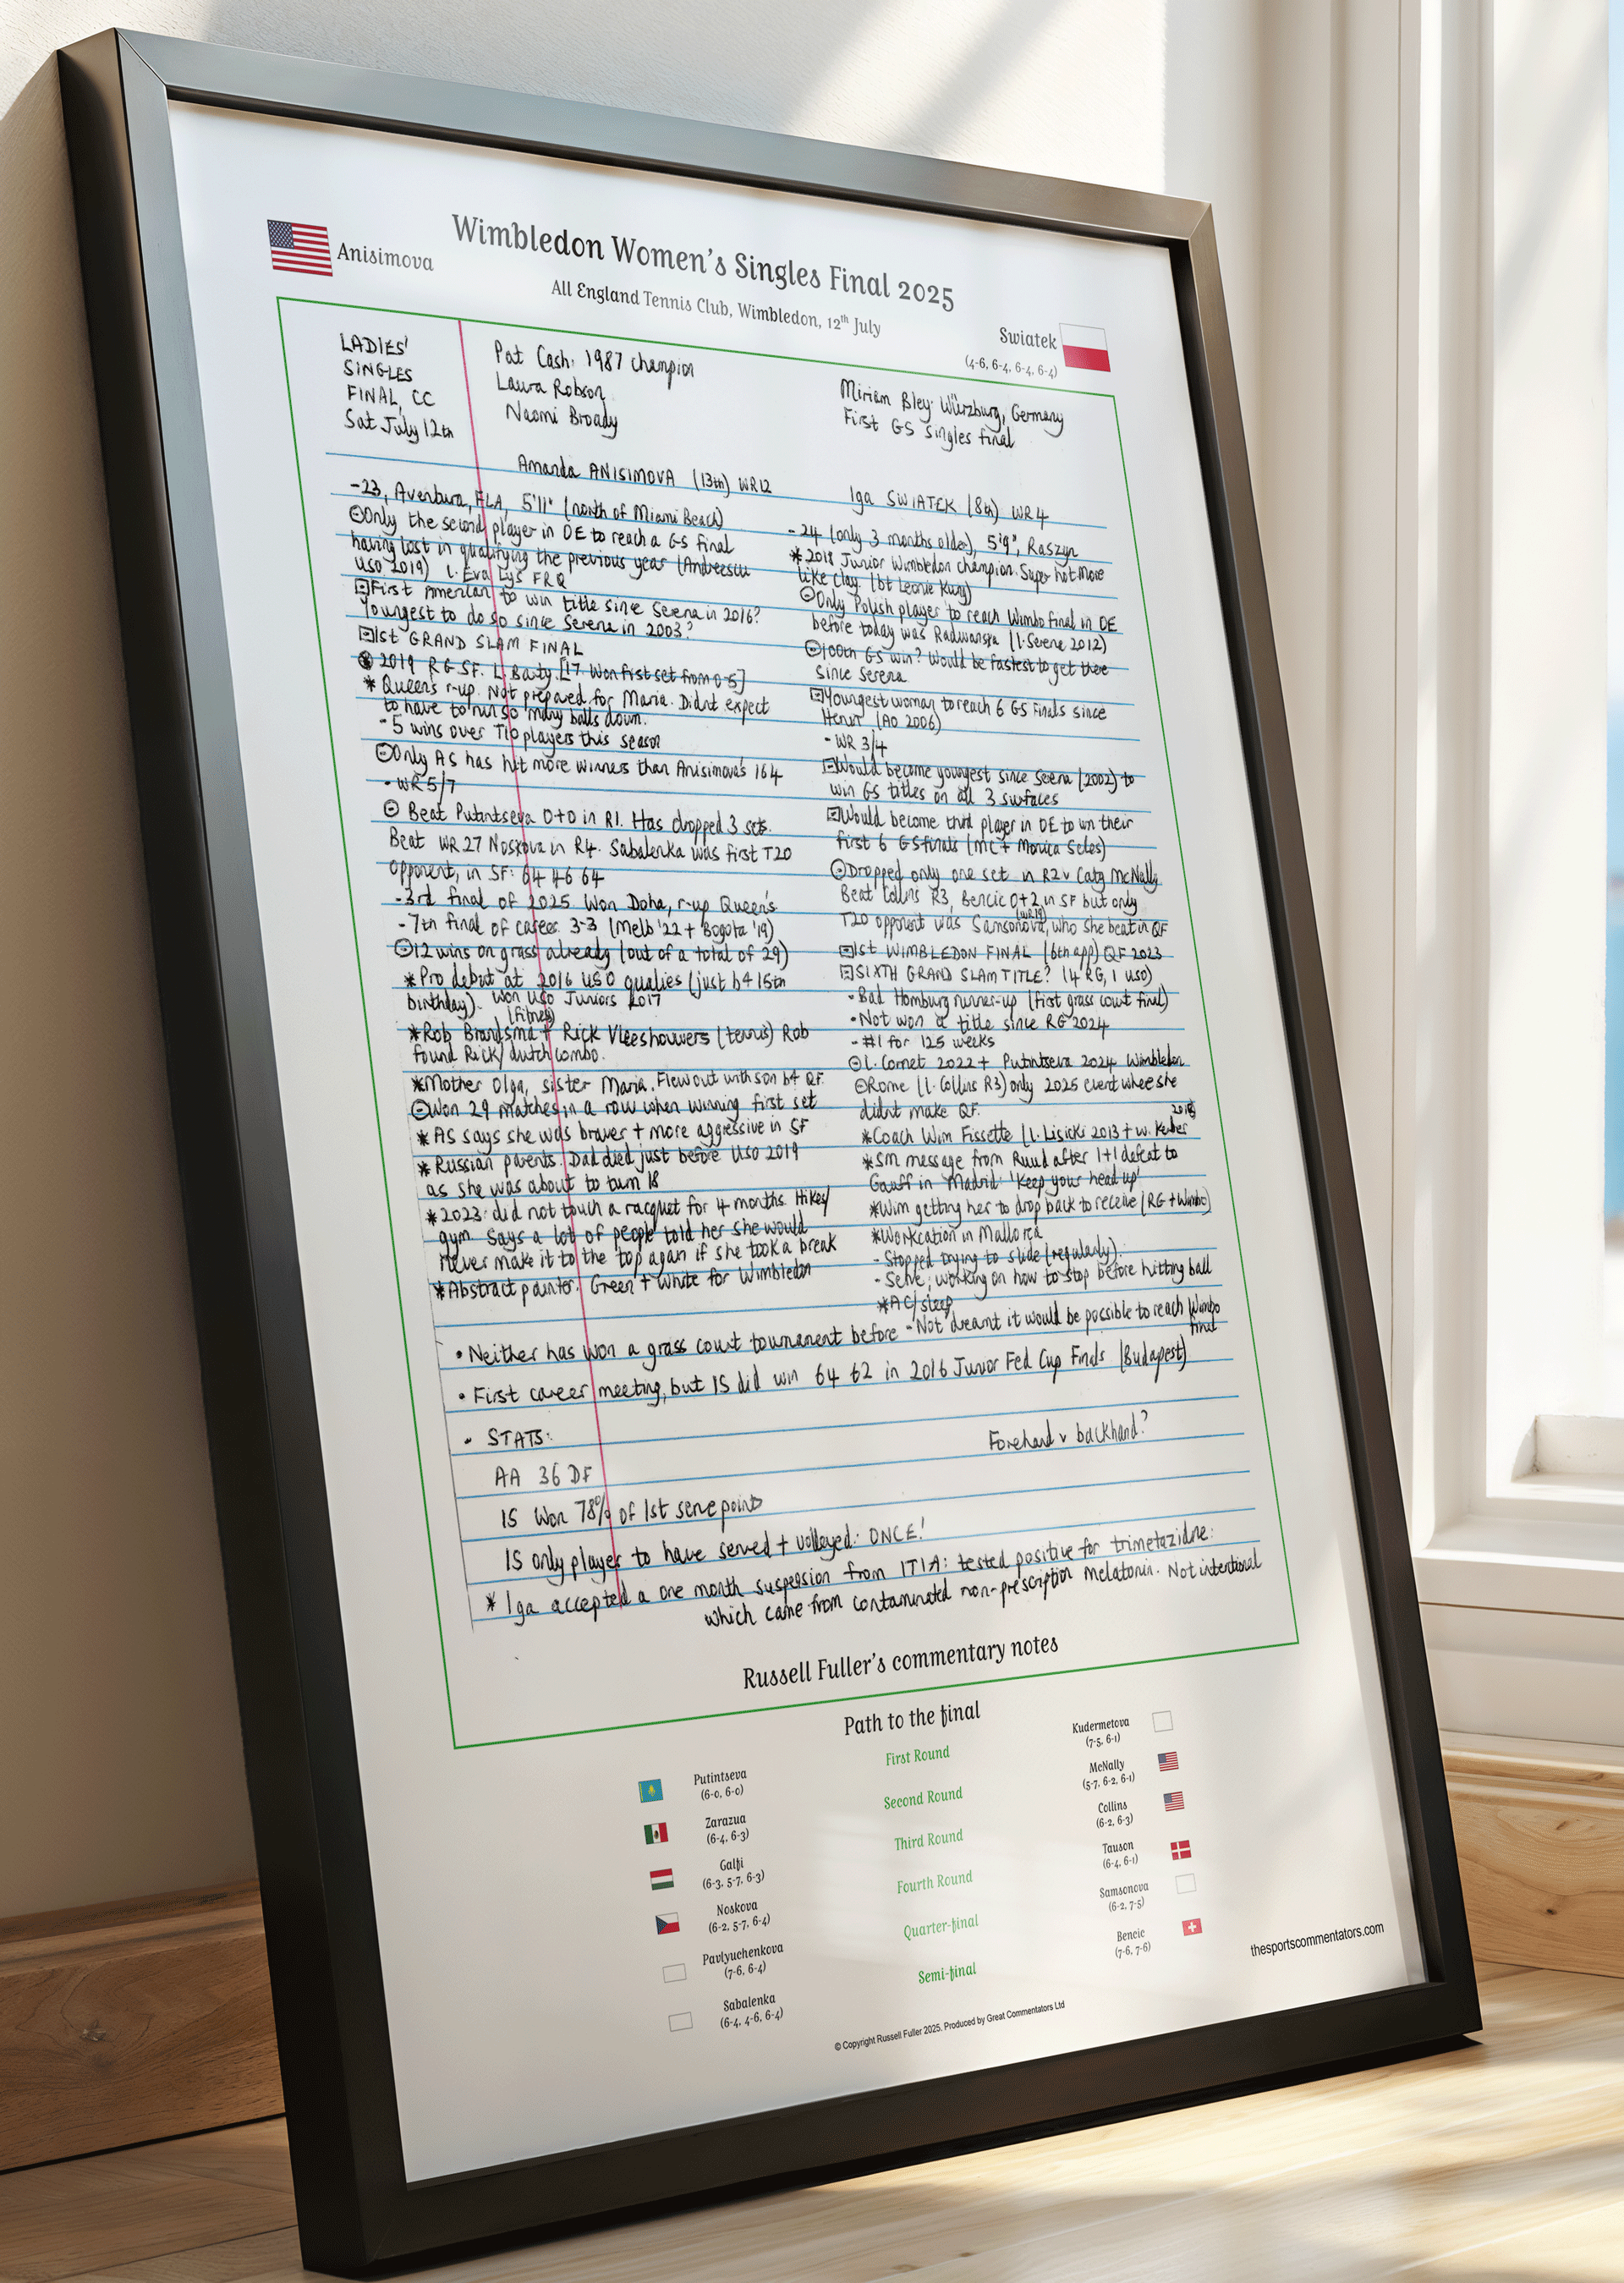 Wimbledon Women's Singles Final 2025
All England Tennis Club, Wimbledon, 12th July
Anisimova
Swiatek
(4-6, 6-4, 6-4, 6-4)
LADIES'
SINGLES
FINAL, CC
Sat July 12th
Pat Cash: 1987 champion
Laura Robson
Naomi Broady
Miriam Bley: Würzburg, Germany
First GS singles final
Amanda ANISIMOVA (13th) WR12
-23, Aventura, FLA, 5'11" (north of Miami Beach)
Only the second player in OE to reach a GS final
having lost in qualifying the previous year (Andreescu
USO 2019) l. Eva Lys FRQ
First American to win title since Serena in 2016?
Youngest to do so since Serena in 2003?
1st GRAND SLAM FINAL
2019 RG SF. L. Barty. [17. Won first set from 0-5]
* Queen's r-up. Not prepared for Maria. Didnt expect
to have to run so many balls down.
- 5 wins over T10 players this season
Only AS has hit more winners than Anisimova's 164
- WR5/7
Beat Putintseva 0+0 in R1. Has dropped 3 sets.
Beat WR27 Noskova in R4. Sabalenka was first T20
opponent, in SF: 64 46 64
-3rd final of 2025. Won Doha, r-up Queen's
- 7th final of career. 3-3 (Melb '22 + Bogota '19)
12 wins on grass already (out of a total of 29)
*Pro debut at 2016 USO qualies (just b4 15th
birthday). Won USO Juniors 2017
(fitness)
*Rob Brandsma + Rick Vleeshouwers (tennis) Rob
found Rick/dutch combo.
*Mother Olga, sister Maria. Flew out with son b4 QF.
Won 29 matches in a row when winning first set
* AS says she was braver + more aggressive in SF
* Russian parents. Dad died just before USO 2019
as she was about to turn 18
*2023: did not touch a racquet for 4 months. Hikes/
gym. Says a lot of people told her she would
never make it to the top again if she took a break
*Abstract painter. Green + white for Wimbledon
Iga SWIATEK (8th) WR4
- 24 (only 3 months older), 5'9", Raszyn
* 2018 Junior Wimbledon champion. Super hot. More
like clay. (bt Leonie Kung)
Only Polish player to reach Wimbo final in OE
before today was Radwanska (l. Serena 2012)
100th GS win? Would be fastest to get there
since Serena
Youngest woman to reach 6 GS finals since
Henin (AO 2006)
- WR 3/4
Would become youngest since Serena (2002) to
win GS titles on all 3 surfaces
Would become third player in OE to win their
first 6 GS finals (MC + Monica Seles)
Dropped only one set in R2 v Caty McNally
Beat Collins R3, Bencic 0+2 in SF but only
(WR19)
T20 opponent was Samsonova, who she beat in QF
1st WIMBLEDON FINAL (6th app) QF 2023
SIXTH GRAND SLAM TITLE? (4 RG, 1 USO)
- Bad Homburg runner-up (first grass court final)
- Not won a title since RG 2024
- #1 for 125 weeks
l. Cornet 2022 + Putintseva 2024 Wimbledon
Rome (l. Collins R3) only 2025 event where she
didnt make QF.
2018
*Coach Wim Fissette (l. Lisicki 2013 + w. Kerber
*SM message from Ruud after 1+1 defeat to
Gauff in Madrid: 'Keep your head up'
*Wim getting her to drop back to receive (RG + Wimbo)
*Workcation in Mallorca
- Stopped trying to slide (regularly).
- Serve; working on how to stop before hitting ball
*AC/sleep
- Not dreamt it would be possible to reach Wimbo
final
• Neither has won a grass court tournament before
• First career meeting, but IS did win 64 62 in 2016 Junior Fed Cup Finals (Budapest)
- STATS:
Forehand v backhand?
AA 36 DF
IS Won 78% of 1st serve points
IS only player to have served + volleyed: ONCE!
* Iga accepted a one month suspension from ITIA: tested positive for trimetazidine:
which came from contaminated non-prescription melatonin. Not intentional
Russell Fuller's commentary notes
Path to the final
First Round
Second Round
Third Round
Fourth Round
Quarter-final
Semi-final
Putintseva
(6-0, 6-0)
Zarazua
(6-4, 6-3)
Galfi
(6-3, 5-7, 6-3)
Noskova
(6-2, 5-7, 6-4)
Pavlyuchenkova
(7-6, 6-4)
Sabalenka
(6-4, 4-6, 6-4)
Kudermetova
(7-5, 6-1)
McNally
(5-7, 6-2, 6-1)
Collins
(6-2, 6-3)
Tauson
(6-4, 6-1)
Samsonova
(6-2, 7-5)
Bencic
(7-6, 7-6)
thesportscommentators.com
© Copyright Russell Fuller 2025. Produced by Great Commentators Ltd